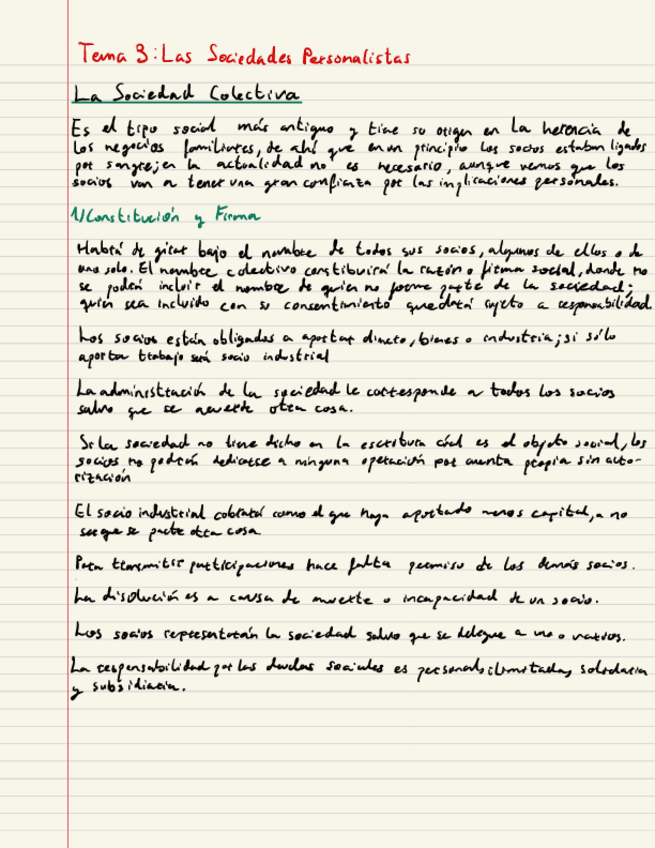 Tema 3: Las Sociedades Personalistas
La Sociedad Colectiva
Es el tipo social más antiguo y tiene su origen en la herencia de
los negocios familiares, de ahí que en un principio los socios estaban ligados
por sangre; en la actualidad no es necesario, aunque vemos que los
socios van a tener una gran confianza por las implicaciones personales.
1/Constitución y Firma
Habrá de girar bajo el nombre de todos sus socios, algunos de ellos o de
uno solo. El nombre colectivo constituirá la razón o firma social, donde no
se podrá incluir el nombre de quien no forme parte de la sociedad;
quien sea incluido con su consentimiento quedará sujeto a responsabilidad
Los socios están obligados a aportar dinero, bienes o industria; si sólo
aporta trabajo será socio industrial
La administración de la sociedad le corresponde a todos los socios
salvo que se acuerde otra cosa.
Si la sociedad no tiene dicho en la escritura cúal es el objeto social, los
socios no podrán dedicarse a ninguna operación por cuenta propia sin auto-
rización
El socio industrial cobrará como el que haya aportado menos capital, a no
ser que se pacte otra cosa.
Para transmitir participaciones hace falta permiso de los demás socios.
La disolución es a causa de muerte o incapacidad de un socio.
Los socios representarán la sociedad salvo que se delegue a uno o varios.
La responsabilidad por las deudas sociales es personal, ilimitada, solidaria
y subsidiaria.